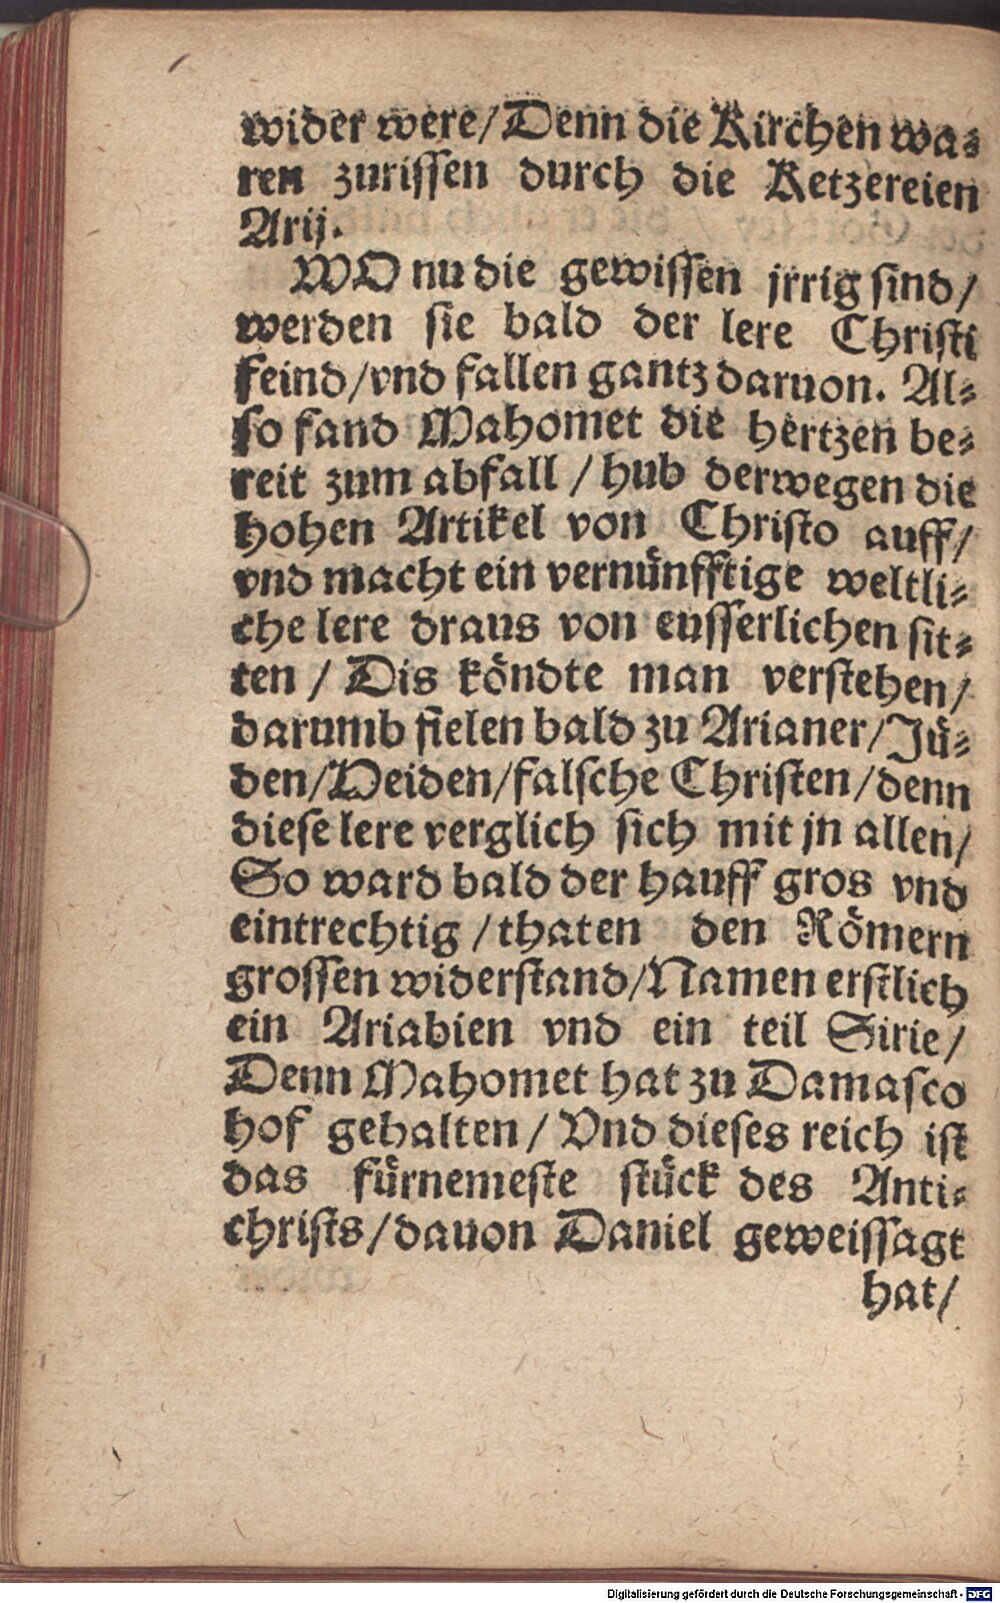 wider were/Denn die Kirchen wa⸗
ren zurissen durch die Ketzereien
Arij.
WO nu die gewissen jrrig sind/
werden sie bald der lere Christi
feind/vnd fallen gantz daruon. Al⸗
so fand Mahomet die hertzen be⸗
reit zum abfall / hub derwegen die
hohen Artikel von Christo auff/
vnd macht ein vernünfftige weltli⸗
che lere draus von eusserlichen sit⸗
ten / Dis köndte man verstehen/
darumb fielen bald zu Arianer/Jü⸗
den/Heiden/falsche Christen/denn
diese lere verglich sich mit jn allen/
So ward bald der hauff gros vnd
eintrechtig/thaten den Römern
grossen widerstand/Namen erstlich
ein Ariabien vnd ein teil Sirie/
Denn Mahomet hat zu Damasco
hof gehalten/ Vnd dieses reich ist
das fürnemeste stück des Anti⸗
christs/dauon Daniel geweissagt
hat/
Digitalisierung gefördert durch die Deutsche Forschungsgemeinschaft - DFG